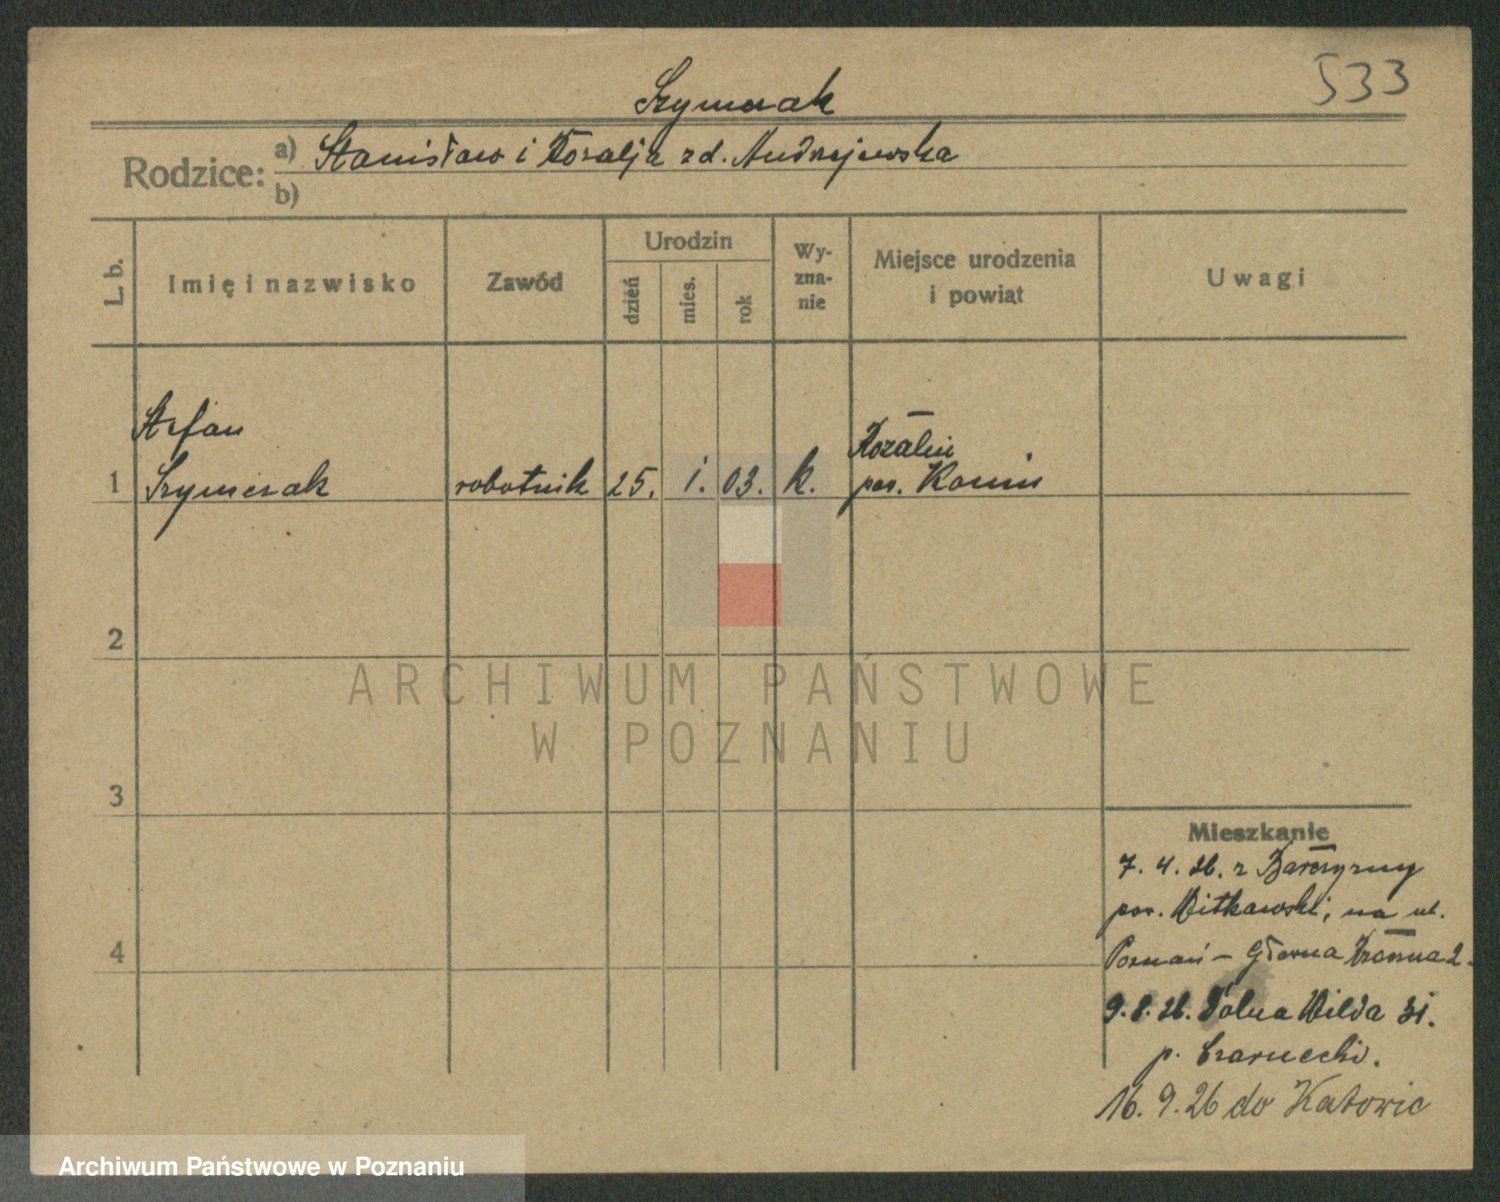 533
Szymczak
Rodzice: a) Stanisław i Rozalja zd. Andrzejewska
b)
L. b.
Imię i nazwisko
Zawód
Urodzin
dzień
mies.
rok
Wy-
zna-
nie
Miejsce urodzenia
i powiat
Uwagi
Stefan
1 Szymczak robotnik 25. 1. 03. k.
pow. Konin
2
3
4
ARCHIWUM PAŃSTWOWE
W POZNANIU
Mieszkanie
7. 4. 26. z
pow. Witkowski, na ul.
Poznań – Główna 2.
9. 8. 26. Dolna Wilda 31.
p. Czarnecki.
16. 9. 26 do Katowic
Archiwum Państwowe w Poznaniu